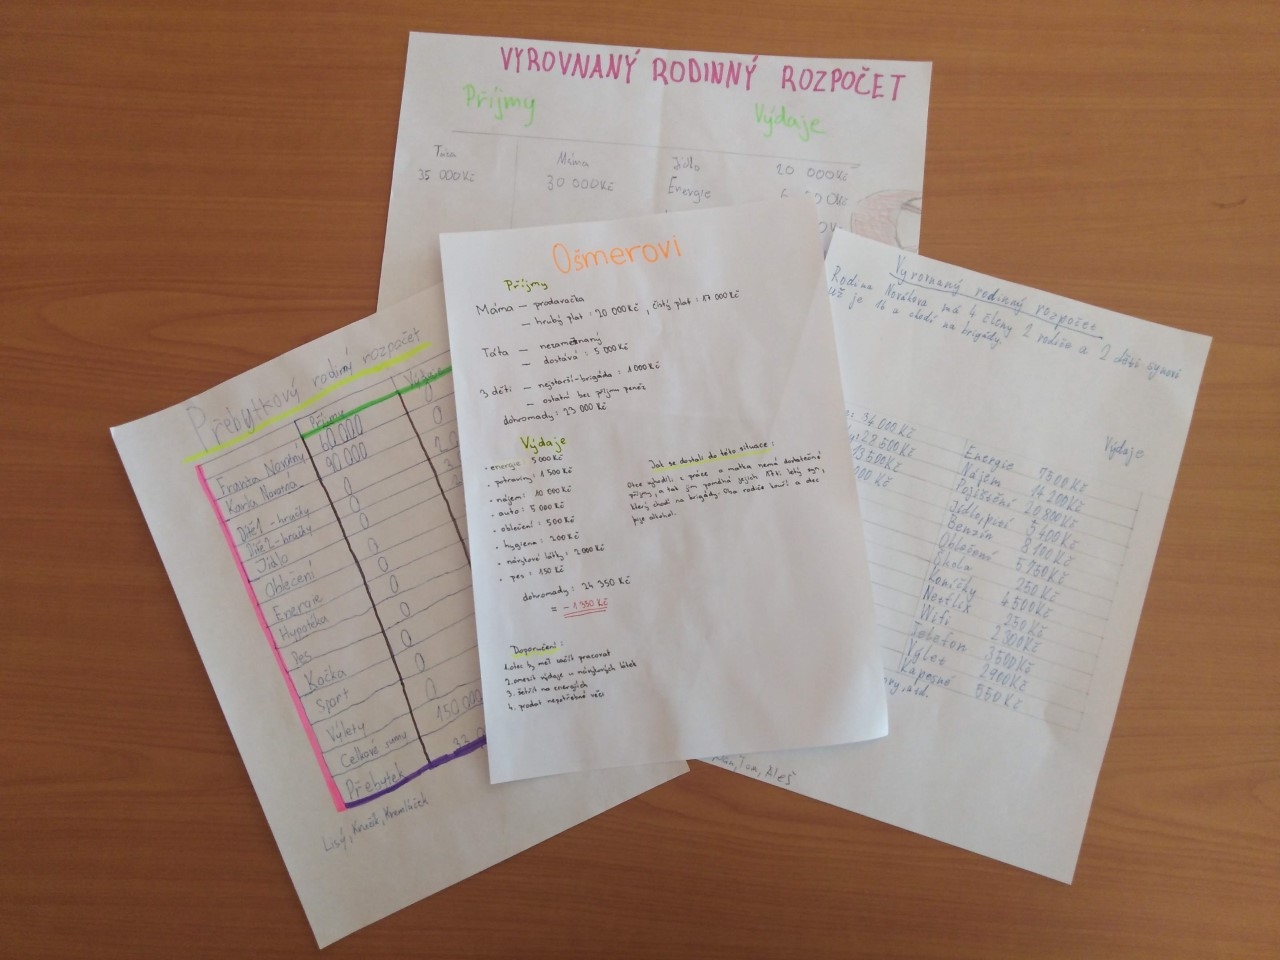 VYROVNANÝ RODINNÝ ROZPOČET
Příjmy
Výdaje
Táta
Máma
Jídlo
20 000Kč
35 000Kč
30 000Kč
Energie
Ošmerovi
Příjmy
Máma – prodavačka
– hrubý plat : 20 000Kč, čistý plat : 17 000Kč
Táta – nezaměstnaný
– dostává : 5 000Kč
3 děti – nejstarší - brigáda : 1 000Kč
– ostatní bez příjmu peněz
dohromady : 23 000 Kč
Výdaje
• energie : 5 000Kč
• potraviny : 1 500Kč
• nájem : 10 000 Kč
• auto : 5 000Kč
• oblečení : 500Kč
• hygiena : 200Kč
• návykové látky : 2 000Kč
• pes : 150 Kč
dohromady : 24 350 Kč
= – 1 350 Kč
Jak se dostali do této situace :
Otce vyhodili z práce a matka nemá dostatečné
příjmy, a tak jim pomáhá jejich 17ti letý syn,
který chodí na brigády. Oba rodiče kouří a otec
pije alkohol.
Doporučení :
1. otec by měl začít pracovat
2. omezit výdaje u návykových látek
3. šetřit na energiích
4. prodat nepotřebné věci
Přebytkový rodinný rozpočet
Příjmy
Výdaje
Franta Novotný
60 000
0
Karla Novotná
90 000
Dítě 1 - hračky
0
Dítě 2 - hračky
0
Jídlo
0
Oblečení
0
Energie
0
Hypotéka
0
Pes
0
Kočka
0
Sport
0
Výlety
0
Celková suma
150 000
Přebytek
Lisý, Kručík,
Vyrovnaný rodinný rozpočet
Rodina Novákova má 4 členy 2 rodiče a 2 děti synovi
už je 16 a chodí na brigády.
Výdaje
34 000Kč
28 500Kč
13 500Kč
Energie
7500Kč
Nájem
14 200Kč
Pojištění
20 800Kč
Jídlo, pití
3 400Kč
Benzín
8 100Kč
Oblečení
5 250Kč
Škola
250Kč
Koníčky
4 500Kč
Netflix
250Kč
Wifi
2 300Kč
Telefon
3500Kč
Výlet
2 400Kč
Kapesné
550Kč
Tom, Aleš